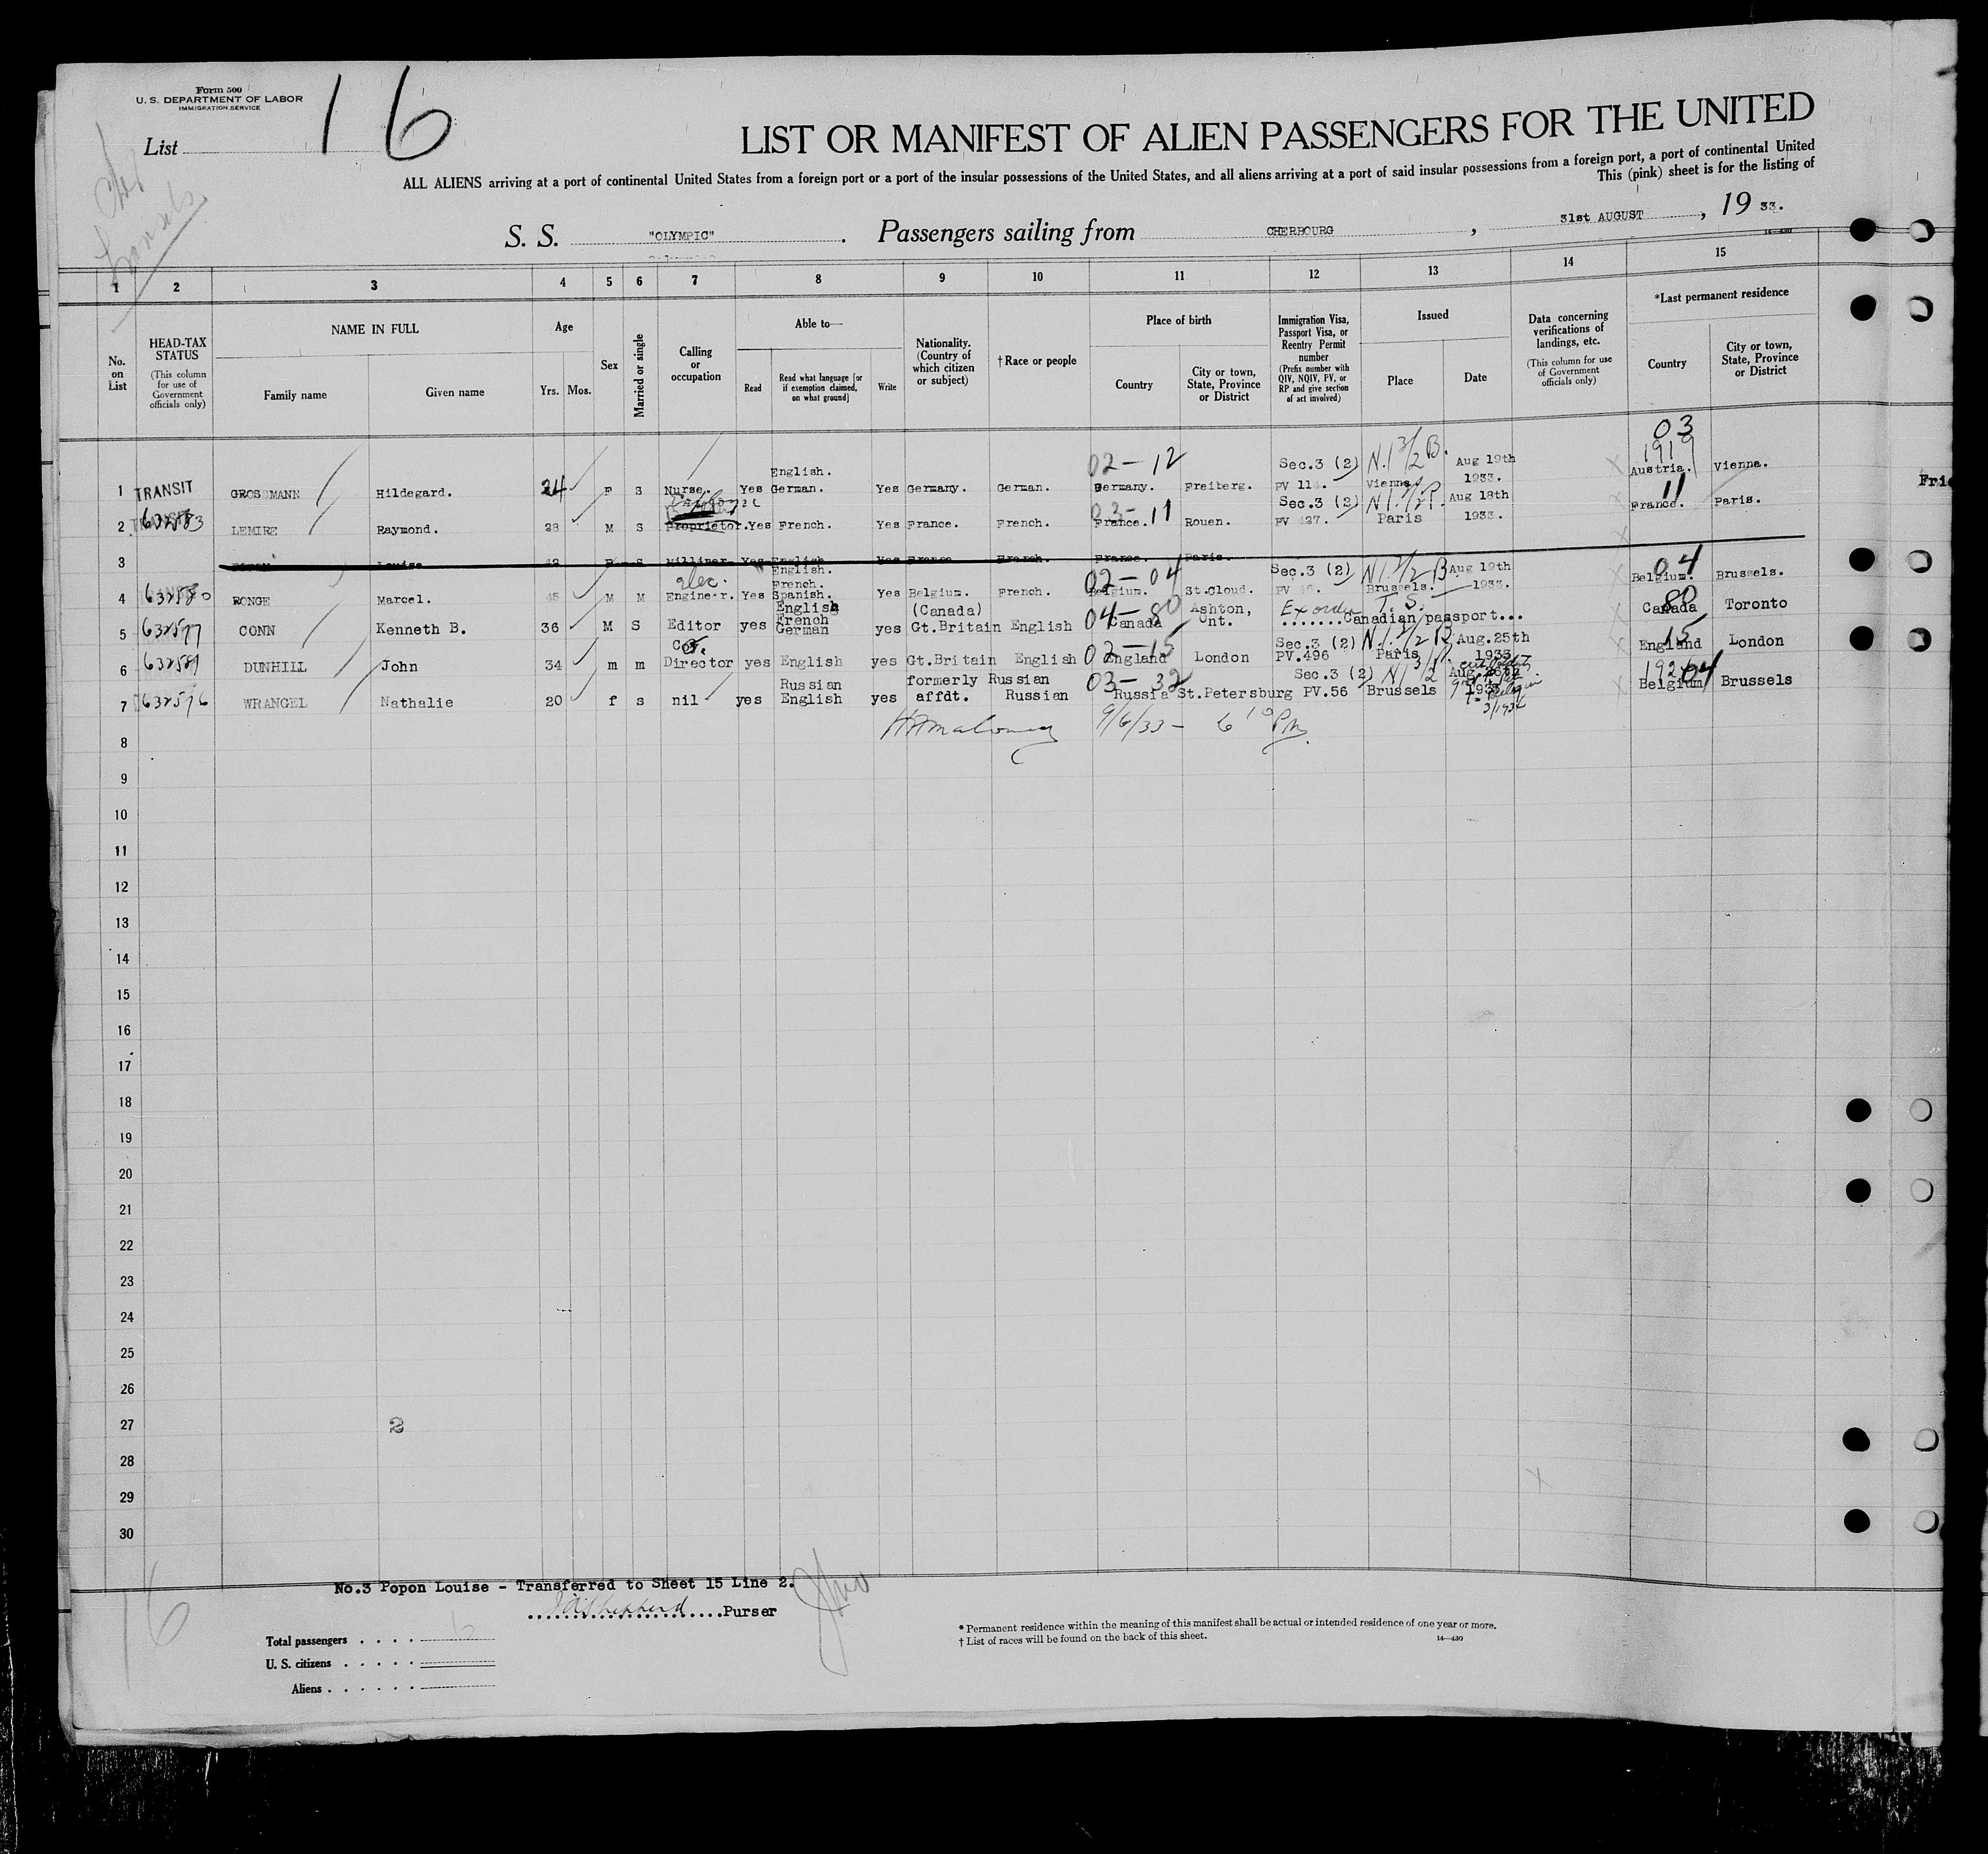 Form 500
U. S. DEPARTMENT OF LABOR
IMMIGRATION SERVICE
List 16
LIST OR MANIFEST OF ALIEN PASSENGERS FOR THE UNITED
ALL ALIENS arriving at a port of continental United States from a foreign port or a port of the insular possessions of the United States, and all aliens arriving at a port of said insular possessions from a foreign port, a port of continental United
This (pink) sheet is for the listing of
S. S. "OLYMPIC" . Passengers sailing from CHERBOURG , 31st AUGUST , 19 33.
1 2 3 4 5 6 7 8 9 10 11 12 13 14 15
No. on List
HEAD-TAX STATUS (This column for use of Government officials only)
NAME IN FULL
Family name Given name
Age
Yrs. Mos.
Sex
Married or single
Calling or occupation
Able to—
Read Read what language [or if exemption claimed, on what ground] Write
Nationality. (Country of which citizen or subject)
†Race or people
Place of birth
Country City or town, State, Province or District
Immigration Visa, Passport Visa, or Reentry Permit number (Prefix number with QIV, NQIV, PV, or RP and give section of act involved)
Issued
Place Date
Data concerning verifications of landings, etc. (This column for use of Government officials only)
*Last permanent residence
Country City or town, State, Province or District
02-12 03 1919
1 TRANSIT GROSSMANN Hildegard. 24 F S Nurse. Yes English. German. Yes Germany. German. Germany. Freiberg. Sec.3 (2) PV 11 Vienna Aug 19th 1933. Austria. Vienna.
03-11 11
2 632583 LEMIRE Raymond. 28 M S Proprietor. Yes French. Yes France. French. France. Rouen. Sec.3 (2) PV 427. Paris Aug 18th 1933. France. Paris.
3 Louise F S Milliner Yes English Yes France French France. Paris.
02-04 04
4 632580 RONGE Marcel. 45 M M elec. Engineer. Yes English. French. Spanish. Yes Belgium. French. Belgium. St.Cloud. Sec.3 (2) PV Brussels. Aug 19th 1933. Belgium. Brussels.
04-80 80
5 632577 CONN Kenneth B. 36 M S Editor yes English French German yes (Canada) Gt.Britain English Canada Ashton, Ont. Ex order T. S. .......Canadian passport... Canada Toronto
02-15 15
6 632581 DUNHILL John 34 m m Co. Director yes English yes Gt.Britain English England London Sec.3 (2) PV.496 Paris Aug.25th 1933 England London
03-32 1926 04
7 632576 WRANGEL Nathalie 20 f s nil yes Russian English yes formerly Russian affdt. Russian Russia St.Petersburg Sec.3 (2) PV.56 Brussels 1933 Belgium Brussels
9/6/33 - 6 10 PM
8
9
10
11
12
13
14
15
16
17
18
19
20
21
22
23
24
25
26
27 2
28
29
30
No.3 Popon Louise - Transferred to Sheet 15 Line 2.
Shepherd Purser
16
Total passengers . . . . 6
U. S. citizens . . . . .
Aliens . . . . . .
* Permanent residence within the meaning of this manifest shall be actual or intended residence of one year or more.
† List of races will be found on the back of this sheet.
14—430